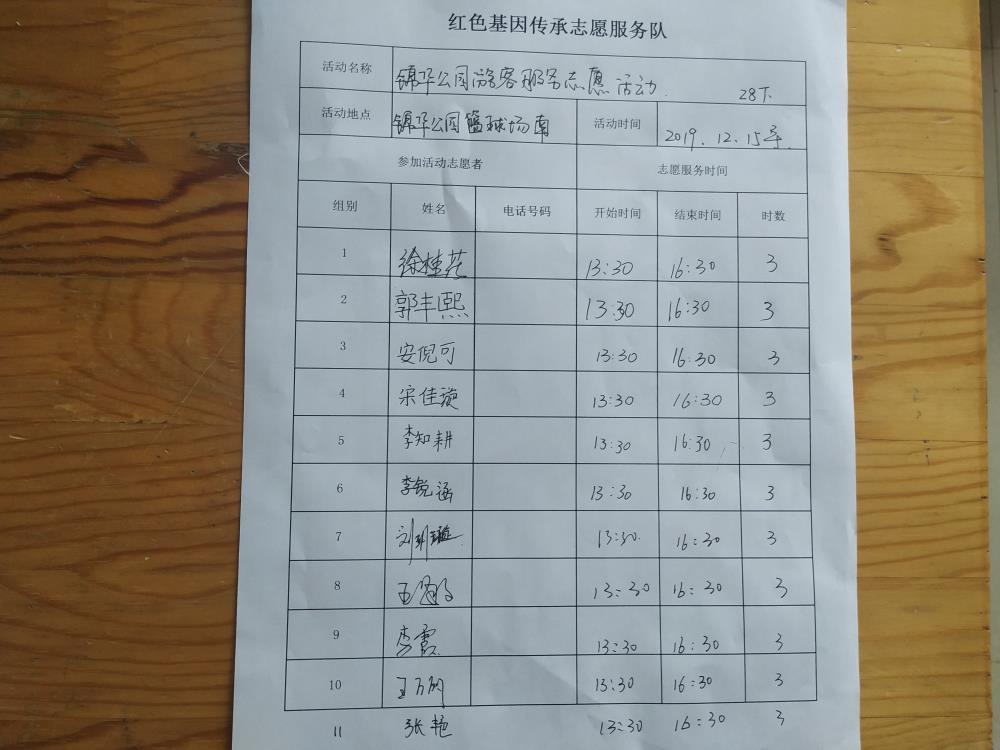 红色基因传承志愿服务队
活动名称 锦华公园游客服务志愿活动. 28下
活动地点 锦华公园篮球场南 活动时间 2019.12.15号.
参加活动志愿者 志愿服务时间
组别 姓名 电话号码 开始时间 结束时间 时数
1 徐桂花 13:30 16:30 3
2 郭丰熙 13:30 16:30 3
3 安倪可 13:30 16:30 3
4 宋佳璇 13:30 16:30 3
5 李知耕 13:30 16:30 3
6 李锐涵 13:30 16:30 3
7 刘 13:30. 16:30 3
8 13:30 16:30 3
9 李霞 13:30 16:30 3
10 13:30 16:30 3
11 张艳 13:30 16:30 3